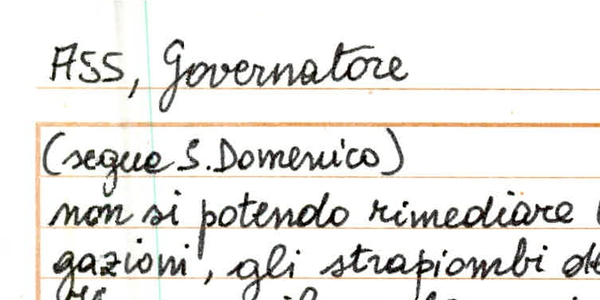 ASS, Governatore
(segue S. Domenico)
non si potendo rimediare
gazioni, gli strapiombi de